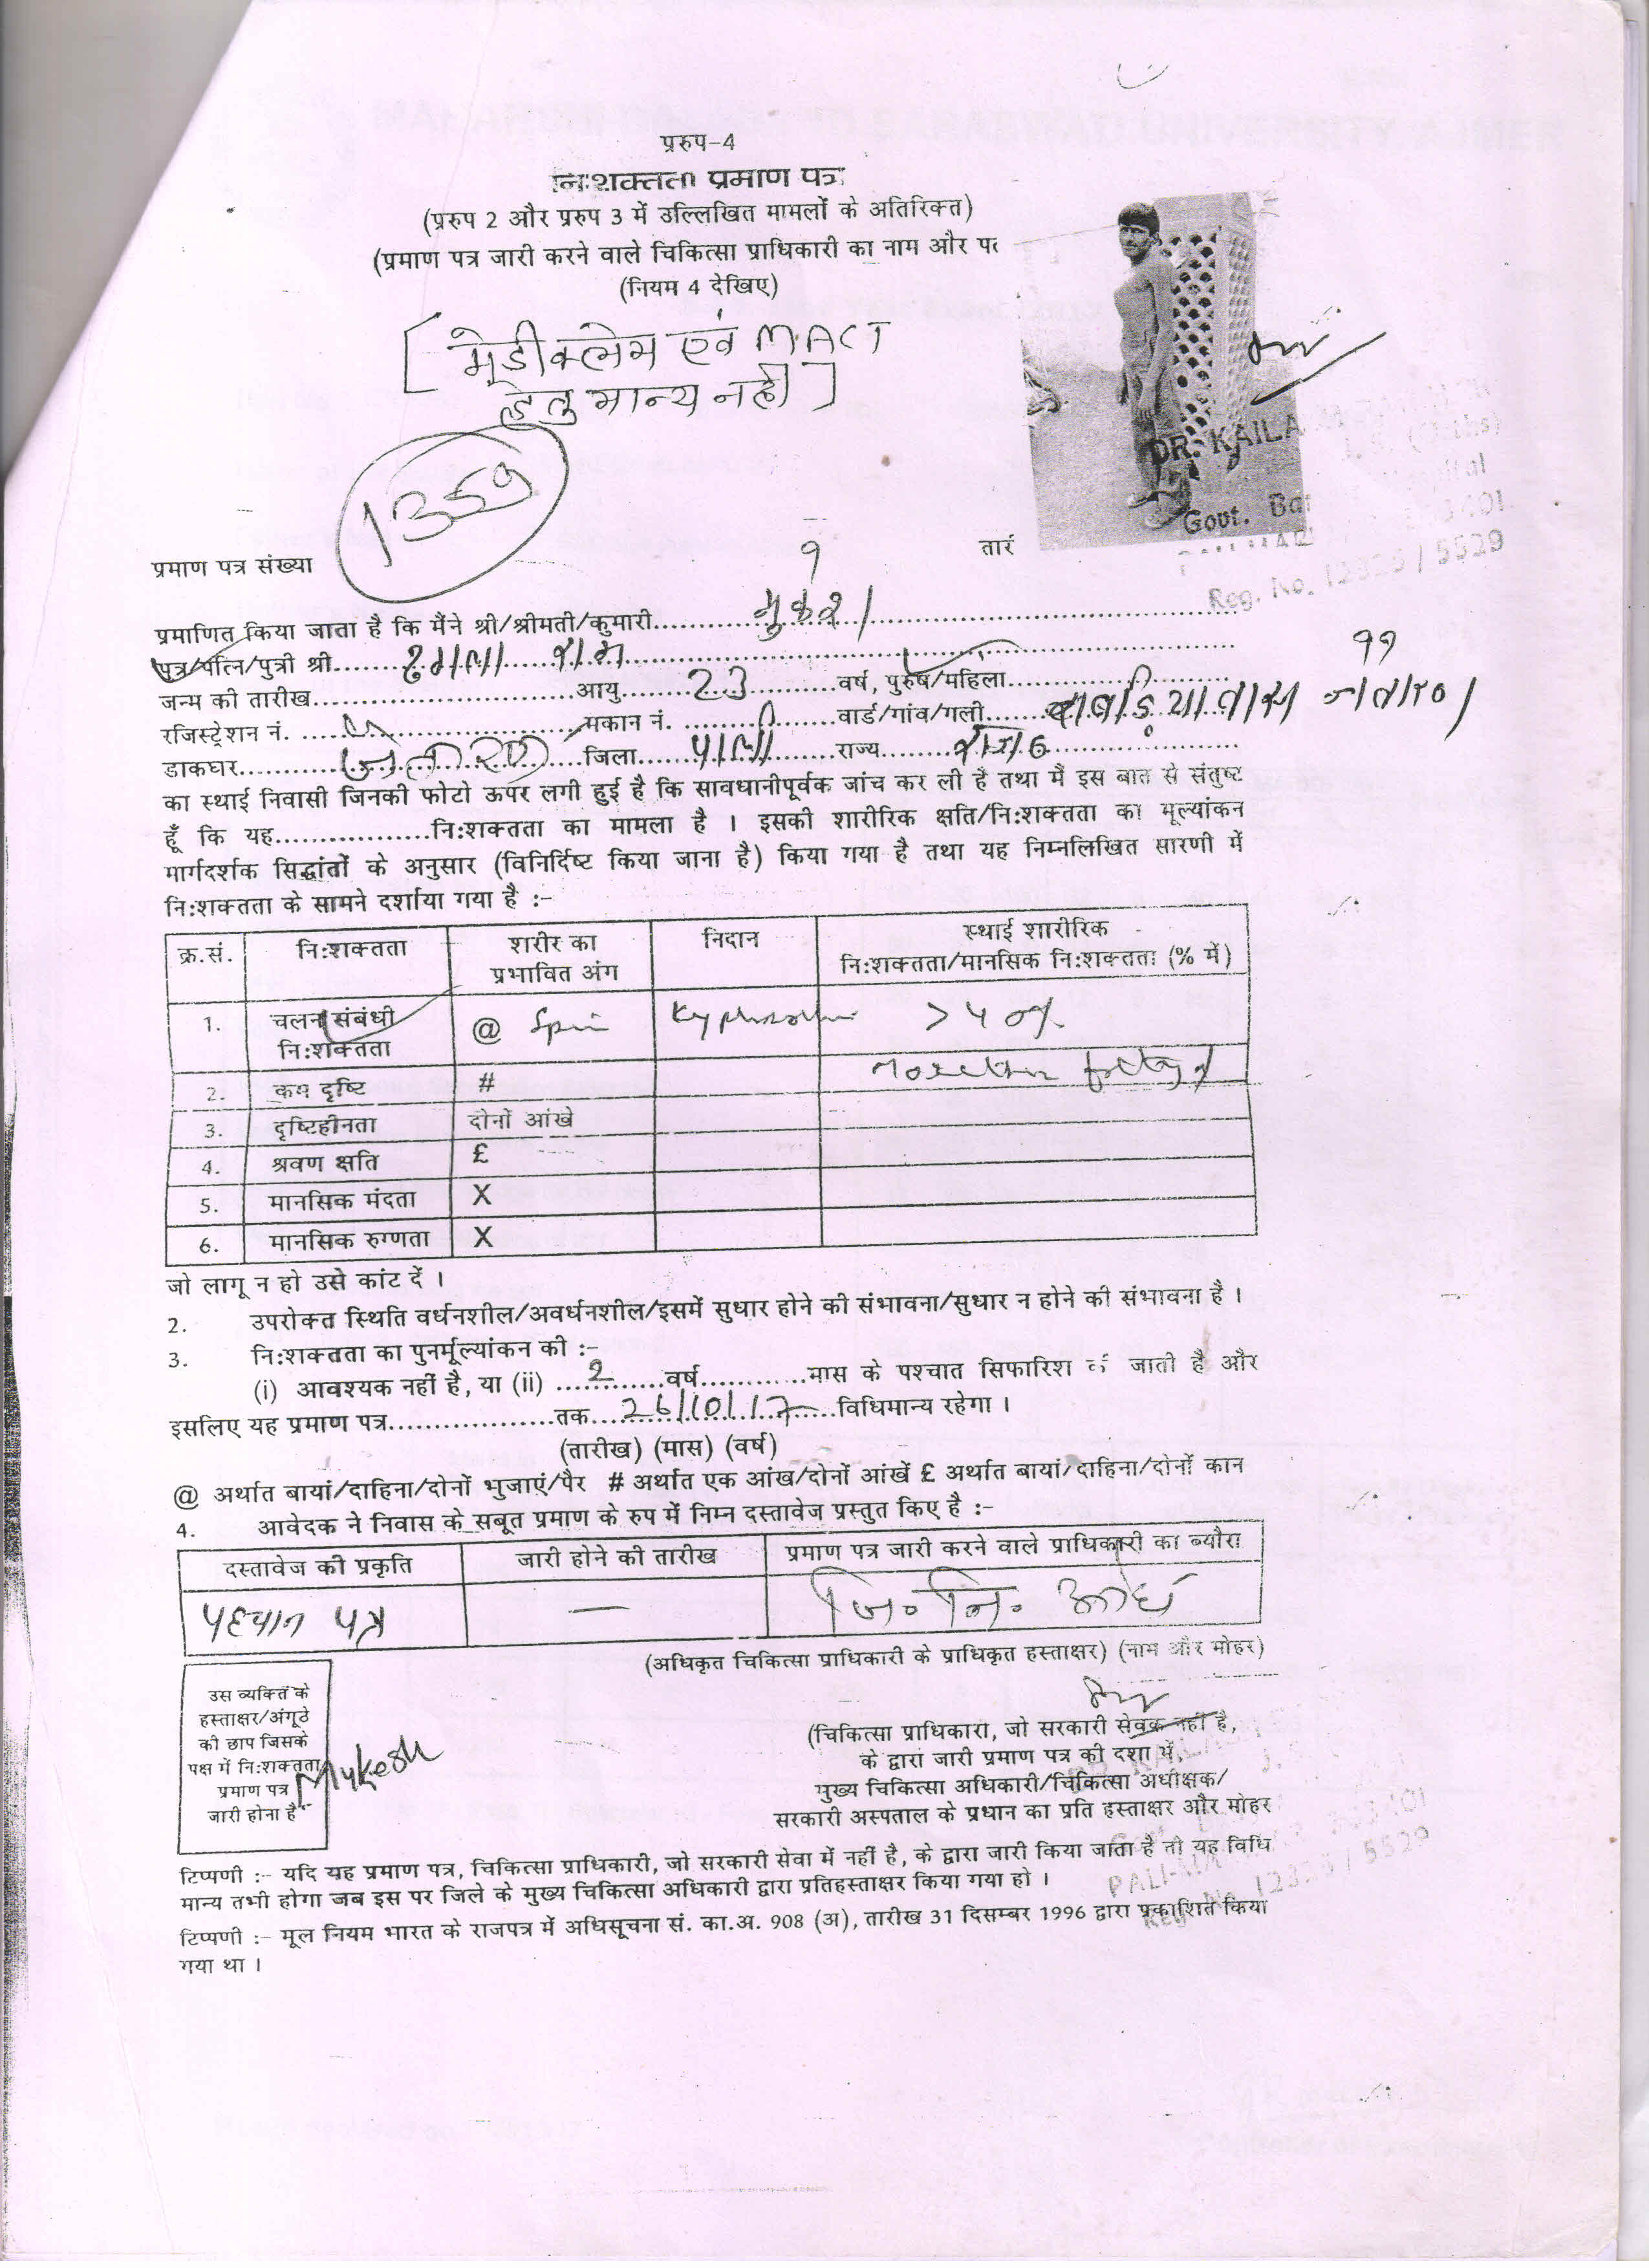 प्ररुप-4
नि:शक्तता प्रमाण पत्र
(प्ररुप 2 और प्ररुप 3 में उल्लिखित मामलों के अतिरिक्त)
(प्रमाण पत्र जारी करने वाले चिकित्सा प्राधिकारी का नाम और पत
(नियम 4 देखिए)
[ मेडीक्लेम एवं M.A.C.T
हेतु मान्य नहीं ]
DR. KAILA
Govt. Ba
Reg. No. / 5529
प्रमाण पत्र संख्या 1359 तारं
प्रमाणित किया जाता है कि मैंने श्री/श्रीमती/कुमारी मुकेश
पुत्र/पत्नि/पुत्री श्री राम
जन्म की तारीख आयु 23 वर्ष, पुरुष/महिला
रजिस्ट्रेशन नं. मकान नं. वार्ड/गांव/गली
डाकघर जिला पाली राज्य राज०
का स्थाई निवासी जिनकी फोटो ऊपर लगी हुई है कि सावधानीपूर्वक जांच कर ली है तथा मैं इस बात से संतुष्ट
हूँ कि यह.................नि:शक्तता का मामला है । इसकी शारीरिक क्षति/नि:शक्तता का मूल्यांकन
मार्गदर्शक सिद्धांतों के अनुसार (विनिर्दिष्ट किया जाना है) किया गया है तथा यह निम्नलिखित सारणी में
नि:शक्तता के सामने दर्शाया गया है :-
क्र.सं. नि:शक्तता शरीर का प्रभावित अंग निदान स्थाई शारीरिक नि:शक्तता/मानसिक नि:शक्तता (% में)
1. चलन संबंधी नि:शक्तता @ >40%
2. कम दृष्टि #
3. दृष्टिहीनता दोनों आंखे
4. श्रवण क्षति £
5. मानसिक मंदता X
6. मानसिक रुग्णता X
जो लागू न हो उसे कांट दें ।
2. उपरोक्त स्थिति वर्धनशील/अवर्धनशील/इसमें सुधार होने की संभावना/सुधार न होने की संभावना है ।
3. नि:शक्तता का पुनर्मूल्यांकन की :-
(i) आवश्यक नहीं है, या (ii) 2 वर्ष............मास के पश्चात सिफारिश की जाती है और
इसलिए यह प्रमाण पत्र...................तक 26/10/17 विधिमान्य रहेगा ।
(तारीख) (मास) (वर्ष)
@ अर्थात बायां/दाहिना/दोनों भुजाएं/पैर # अर्थात एक आंख/दोनों आंखें £ अर्थात बायां/दाहिना/दोनों कान
4. आवेदक ने निवास के सबूत प्रमाण के रुप में निम्न दस्तावेज प्रस्तुत किए है :-
दस्तावेज की प्रकृति जारी होने की तारीख प्रमाण पत्र जारी करने वाले प्राधिकारी का ब्यौरा
पहचान पत्र — जि० नि०
(अधिकृत चिकित्सा प्राधिकारी के प्राधिकृत हस्ताक्षर) (नाम और मोहर)
उस व्यक्ति के
हस्ताक्षर/अंगूठे
की छाप जिसके
पक्ष में नि:शक्तता
प्रमाण पत्र
जारी होना है
Mukesh
(चिकित्सा प्राधिकारी, जो सरकारी सेवक नहीं है,
के द्वारा जारी प्रमाण पत्र की दशा में,
मुख्य चिकित्सा अधिकारी/चिकित्सा अधीक्षक/
सरकारी अस्पताल के प्रधान का प्रति हस्ताक्षर और मोहर
टिप्पणी :- यदि यह प्रमाण पत्र, चिकित्सा प्राधिकारी, जो सरकारी सेवा में नहीं है, के द्वारा जारी किया जाता है तो यह विधि
मान्य तभी होगा जब इस पर जिले के मुख्य चिकित्सा अधिकारी द्वारा प्रतिहस्ताक्षर किया गया हो ।
टिप्पणी :- मूल नियम भारत के राजपत्र में अधिसूचना सं. का.अ. 908 (अ), तारीख 31 दिसम्बर 1996 द्वारा प्रकाशित किया
गया था ।